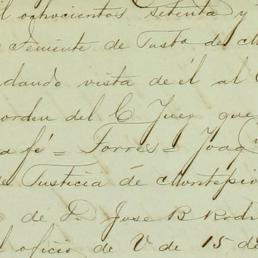 il ochocientos setenta y
Teniente de Justa de ch
dando vista de él al C
orden del C. Juez que
a fé = Torres = Joaq
Justicia de chontepe
de D. Jose B Rodri
l oficio de V de 15 d